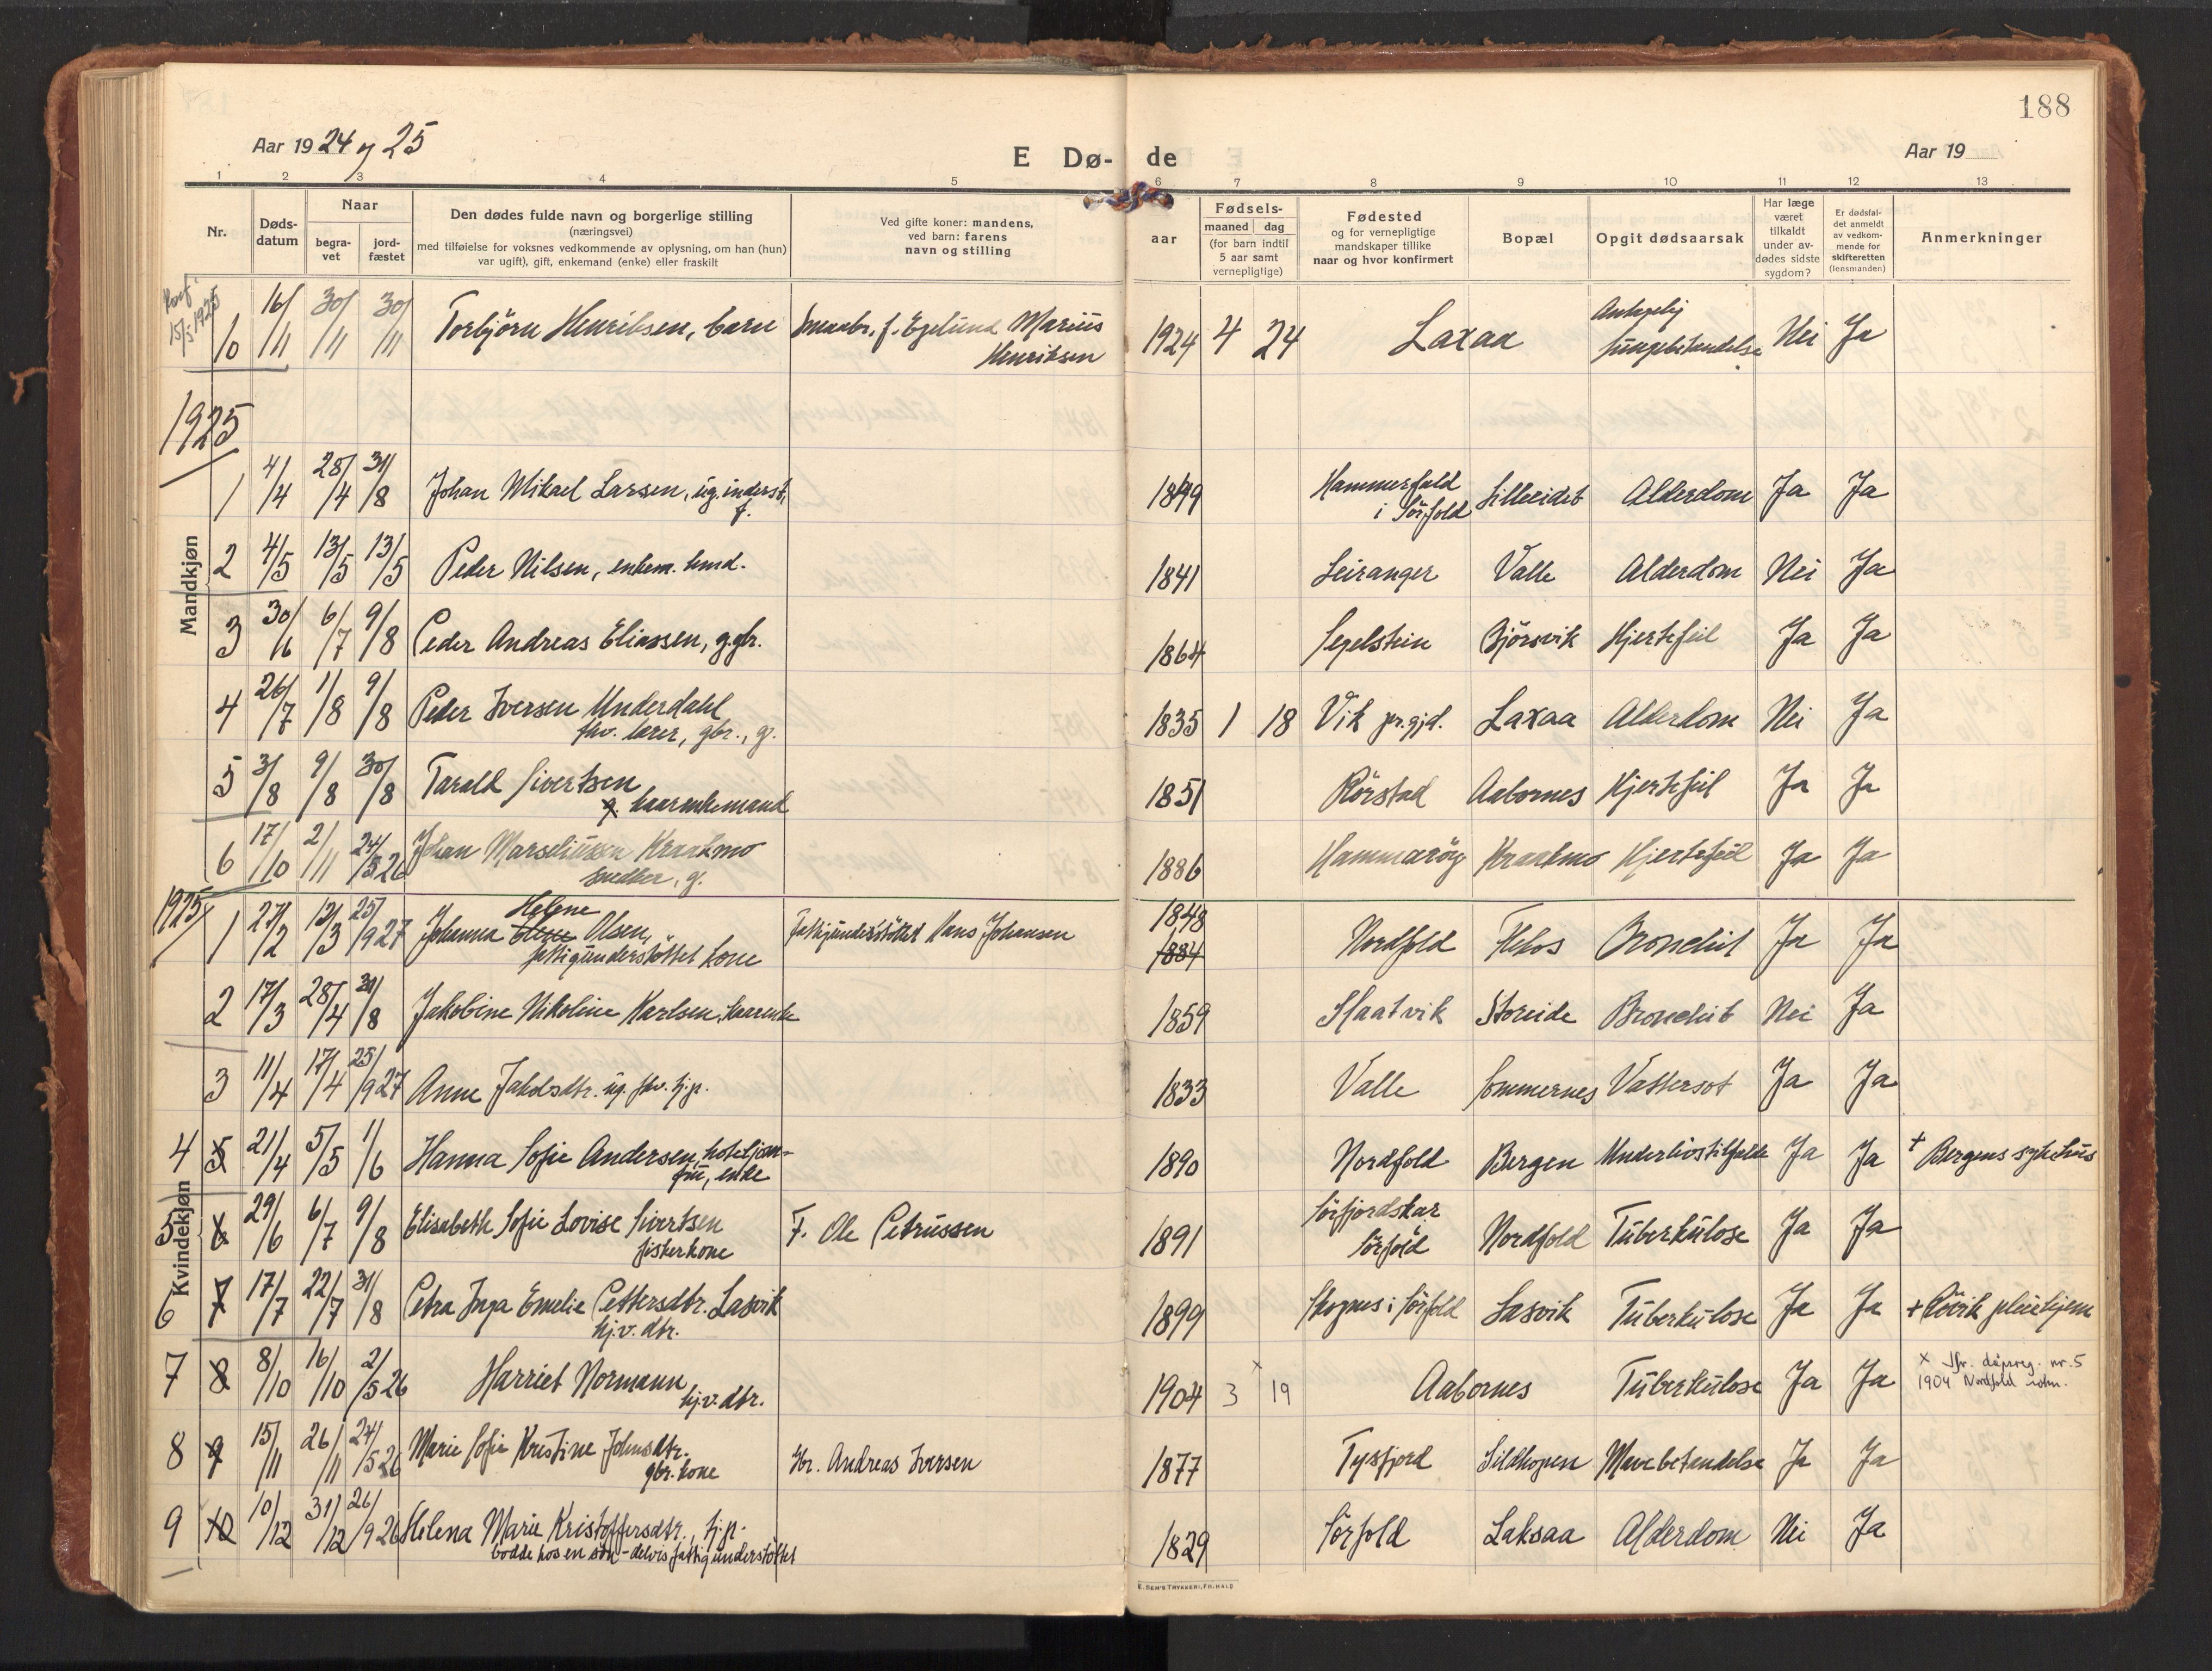 188
Aar 1924 og 25
E Dø- de
Aar 19
1 2 3 4 5 6 7 8 9 10 11 12 13
Nr.
Døds-
datum
Naar
begra-
vet
jord-
fæstet
Den dødes fulde navn og borgerlige stilling
(næringsvei)
med tilføielse for voksnes vedkommende av oplysning, om han (hun)
var ugift), gift, enkemand (enke) eller fraskilt
Ved gifte koner: mandens,
ved barn: farens
navn og stilling
aar
Fødsels-
maaned dag
(for barn indtil
5 aar samt
vernepligtige)
Fødested
og for vernepligtige
mandskaper tillike
naar og hvor konfirmert
Bopæl
Opgit dødsaarsak
Har læge
været
tilkaldt
under av-
dødes sidste
sygdom?
Er dødsfal-
det anmeldt
av vedkom-
mende for
skifteretten
(lensmanden)
Anmerkninger
15/5 1925
10 16/11 30/11 30/11 Torbjørn Henriksen, barn Smaabr. f. Egelund Marius Henriksen 1924 4 24 Laxaa lungebetændelse Nei Ja
1925
Mandkjøn
1 4/4 28/4 31/8 Johan Mikael Larsen, ug. inderst, f. 1849 Hammerfald i Sørfold Lilleeidet Alderdom Ja Ja
2 4/5 13/5 13/5 Peder Nilsen, enkem. kmd. 1841 Leiranger Valle Alderdom Nei Ja
3 30/6 6/7 9/8 Peder Andreas Eliassen, g. gbr. 1864 Segelstein Bjørsvik Hjertefeil Ja Ja
4 26/7 1/8 9/8 Peder Iversen Underdahl
fhv. lærer, gbr., g. 1835 1 18 Vik pr.gjd. Laxaa Alderdom Nei Ja
5 3/8 9/8 30/8 Tarald Sivertsen
g. kaarenkemand 1851 Rørstad Aabornes Hjertefeil Ja Ja
6 17/10 2/11 24/5 26 Johan Marseliussen Kraakmo
snedker, g. 1886 Hammarøy Kraakmo Hjertefeil Ja Ja
1925
Kvindekjøn
1 27/2 13/3 25/9 27 Johanna Elene Helene Olsen,
fattigunderstøttet kone Fattigunderstøttet Hans Johansen 1848 1884 Nordfold Helos Bronchit Ja Ja
2 17/3 28/4 31/8 Jakobine Nikoline Karlsen, kaarenke 1859 Slaatvik Storeide Bronchit Nei Ja
3 11/4 17/4 25/9 27 Anne Jakobsdtr. ug. fhv. tj.p. 1833 Valle Sommernes Vattersot Ja Ja
4 5 21/4 5/5 1/6 Hanna Sofie Andersen, hoteljom-
fru, enke 1890 Nordfold Bergen Underlivstilfælde Ja Ja + Bergens sykehus
5 6 29/6 6/7 9/8 Elisabeth Sofie Lovise Sivertsen
fiskerkone F. Ole Petrussen 1891 Sørfjordskar
Sørfold Nordfold Tuberkulose Ja Ja
6 7 17/7 22/7 31/8 Petra Inga Emelie Pettersdtr. Lasvik
hj.v. dtr. 1899 Skognes i Sørfold Lasvik Tuberkulose Ja Ja + Røvik pleiehjem
7 8 8/10 16/10 2/5 26 Harriet Normann
hj.v. dtr. 1904 3 x 19 Aabornes Tuberkulose Ja Ja x Jfr. dåpsreg. nr. 5
1904 Nordfold sokn.
8 9 15/11 26/11 24/5 26 Marie Sofie Kristine Johnsdtr.
gbr. kone Gbr. Andreas Iversen 1877 Tysfjord Sildhopen Mavebetændelse Ja Ja
9 10 10/12 31/12 26/9 26 Helena Marie Kristoffersdtr., tj.p.
bodde hos en søn - delvis fattigunderstøttet 1829 Sørfold Laksaa Alderdom Nei Ja
E. SEM'S TRYKKERI, FR.HALD